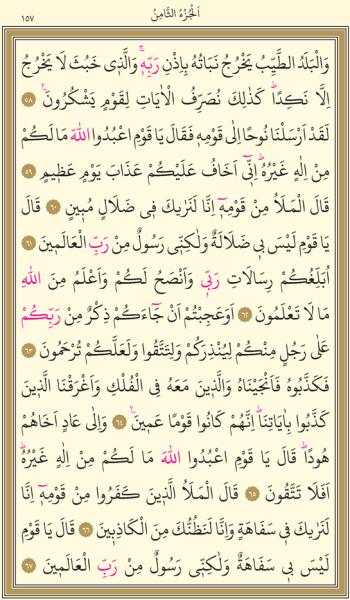 اَلْجُزْءُ الثَّامِنُ
١٥٧
وَالْبَلَدُ الطَّيِّبُ يَخْرُجُ نَبَاتُهُ بِاِذْنِ رَبِّه۪ۚ وَالَّذ۪ي خَبُثَ لَا يَخْرُجُ
اِلَّا نَكِدًاۜ كَذٰلِكَ نُصَرِّفُ الْاٰيَاتِ لِقَوْمٍ يَشْكُرُونَ۟ ﴿٥٨﴾
لَقَدْ اَرْسَلْنَا نُوحًا اِلٰى قَوْمِه۪ فَقَالَ يَا قَوْمِ اعْبُدُوا اللّٰهَ مَا لَكُمْ
مِنْ اِلٰهٍ غَيْرُهُۜ اِنّ۪ٓي اَخَافُ عَلَيْكُمْ عَذَابَ يَوْمٍ عَظ۪يمٍ ﴿٥٩﴾
قَالَ الْمَلَأُ مِنْ قَوْمِه۪ٓ اِنَّا لَنَرٰيكَ ف۪ي ضَلَالٍ مُب۪ينٍ ﴿٦٠﴾ قَالَ
يَا قَوْمِ لَيْسَ ب۪ي ضَلَالَةٌ وَلٰكِنّ۪ي رَسُولٌ مِنْ رَبِّ الْعَالَم۪ينَ ﴿٦١﴾
اُبَلِّغُكُمْ رِسَالَاتِ رَبّ۪ي وَاَنْصَحُ لَكُمْ وَاَعْلَمُ مِنَ اللّٰهِ
مَا لَا تَعْلَمُونَ ﴿٦٢﴾ اَوَعَجِبْتُمْ اَنْ جَٓاءَكُمْ ذِكْرٌ مِنْ رَبِّكُمْ
عَلٰى رَجُلٍ مِنْكُمْ لِيُنْذِرَكُمْ وَلِتَتَّقُوا وَلَعَلَّكُمْ تُرْحَمُونَ ﴿٦٣﴾
فَكَذَّبُوهُ فَاَنْجَيْنَاهُ وَالَّذ۪ينَ مَعَهُ فِي الْفُلْكِ وَاَغْرَقْنَا الَّذ۪ينَ
كَذَّبُوا بِاٰيَاتِنَاۜ اِنَّهُمْ كَانُوا قَوْمًا عَم۪ينَ۟ ﴿٦٤﴾ وَاِلٰى عَادٍ اَخَاهُمْ
هُودًاۜ قَالَ يَا قَوْمِ اعْبُدُوا اللّٰهَ مَا لَكُمْ مِنْ اِلٰهٍ غَيْرُهُۜ
اَفَلَا تَتَّقُونَ ﴿٦٥﴾ قَالَ الْمَلَأُ الَّذ۪ينَ كَفَرُوا مِنْ قَوْمِه۪ٓ اِنَّا
لَنَرٰيكَ ف۪ي سَفَاهَةٍ وَاِنَّا لَنَظُنُّكَ مِنَ الْكَاذِب۪ينَ ﴿٦٦﴾ قَالَ يَا قَوْمِ
لَيْسَ ب۪ي سَفَاهَةٌ وَلٰكِنّ۪ي رَسُولٌ مِنْ رَبِّ الْعَالَم۪ينَ ﴿٦٧﴾